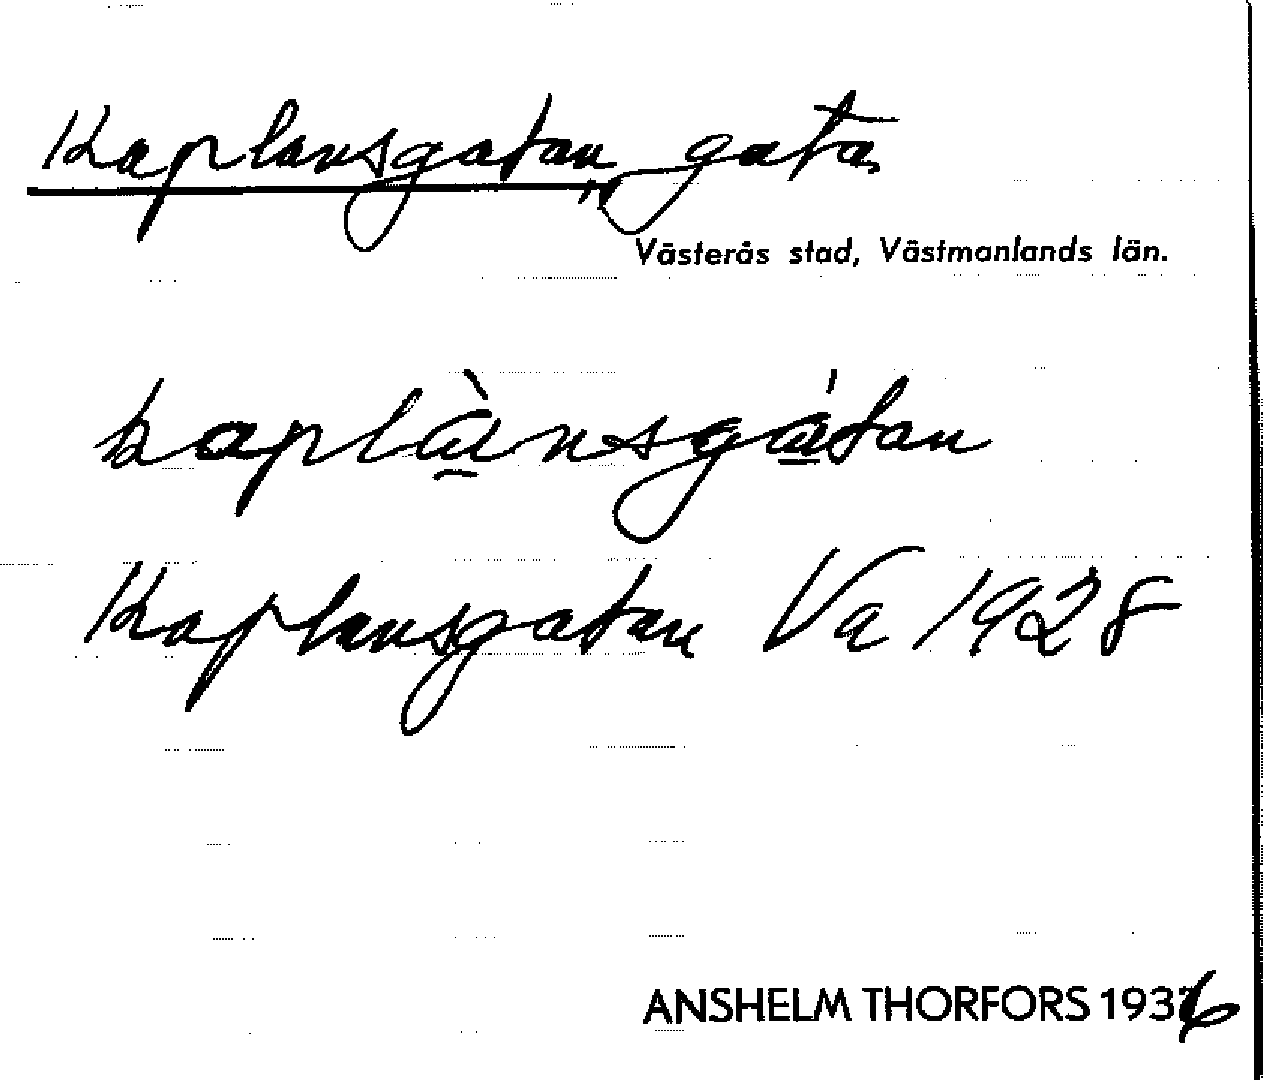 Kaplansgatan, gata
Västerås stad, Västmanlands län.
kaplànsgátan
Kaplansgatan Va 1928
ANSHELM THORFORS 1936